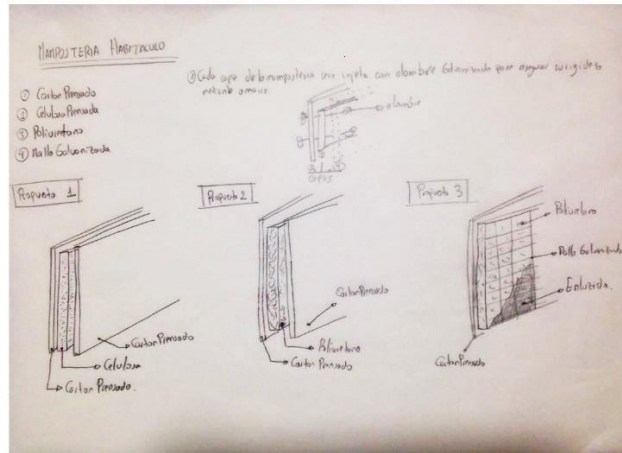 MAMPOSTERIA HABITACULO
① Carton Prensado
② Celulosa Prensada
③ Poliuretano
④ Malla Galvanizada
Cada capa de la mamposteria se sujeta con alambre Galvanizado para asegurar su rigidez
mediante amarre
alambre
CAPAS
Propuesta 1
Carton Prensado
Celulosa
Carton Prensado.
Propuesta 2
Carton Prensado
Poliuretano
Carton Prensado
Propuesta 3
Poliuretano
Malla Galvanizada
Enluzida.
Carton Prensado